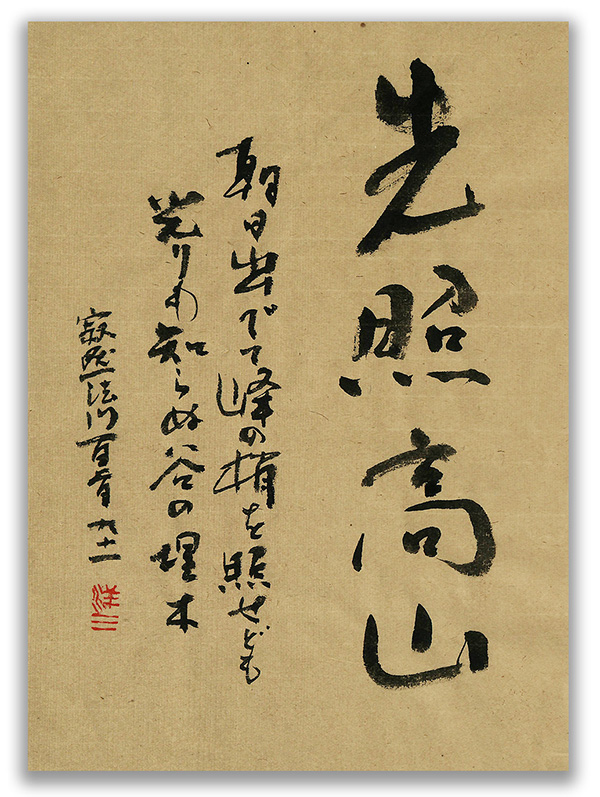 先照高山
朝日出でて峰の梢を照せども
光りも知らぬ谷の埋木
寂然法門百首 九十一
洋三